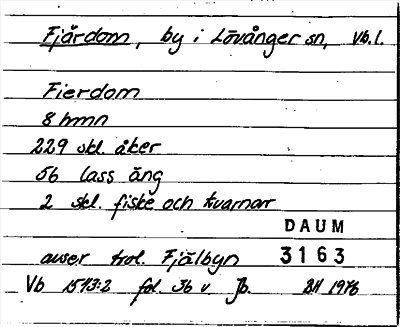 Fjärdom, by i Lövånger sn, Vb.l.
Fierdom
8 hmn
229 skl. åker
56 lass äng
2 skl. fiske och kvarnar
DAUM
avser trol. Fjälbyn 3163
Vb 1543:2 fol. 36 v Jb. BH 1978